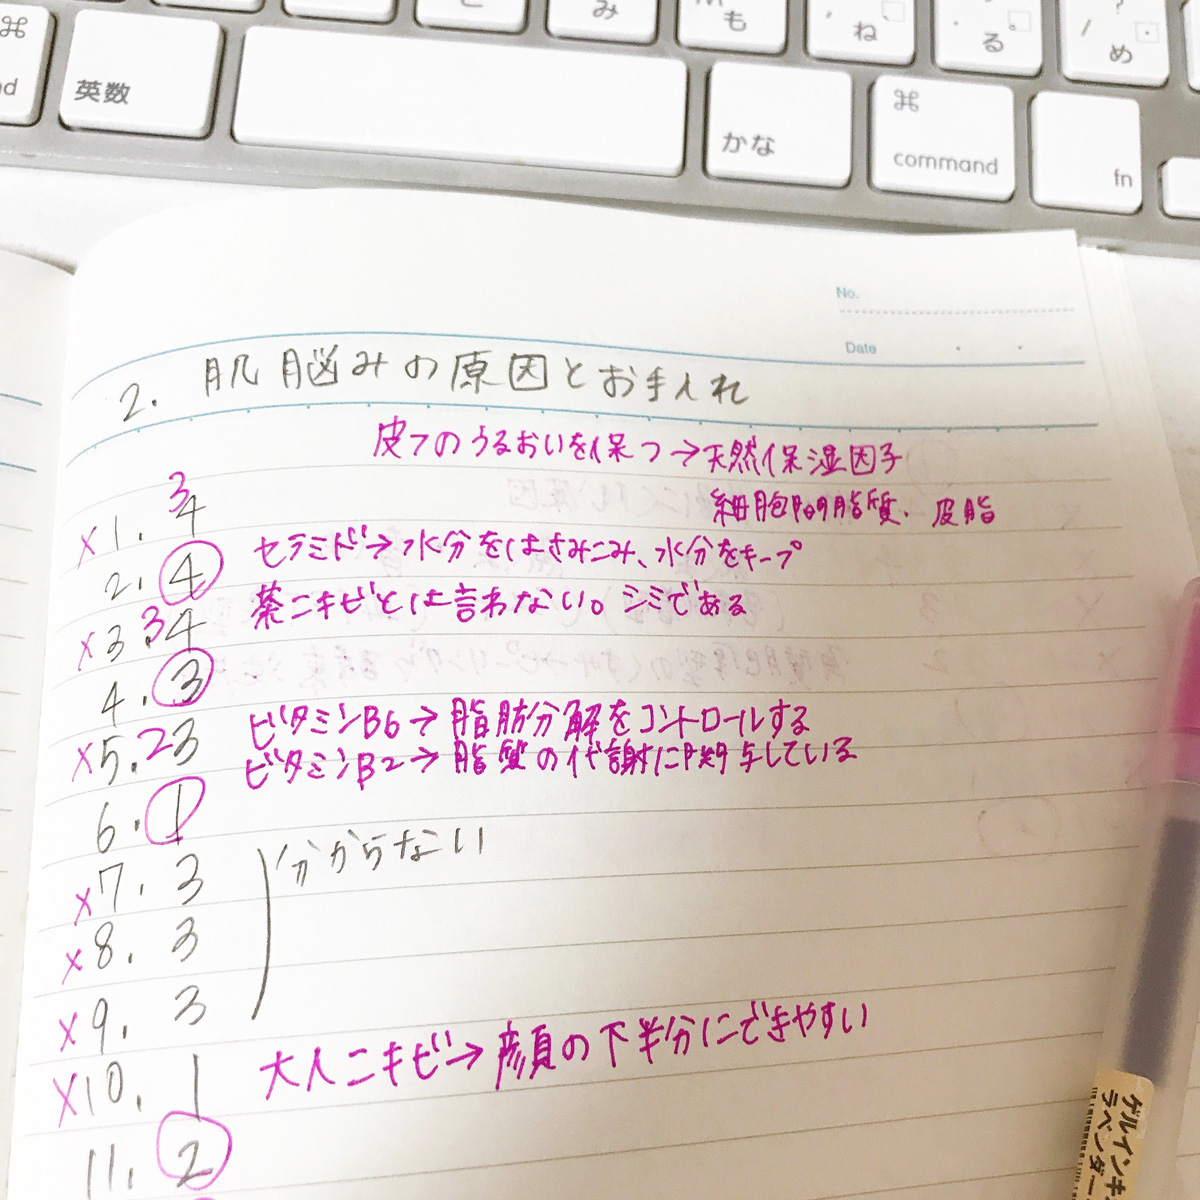 ⌘
み
も
、ね
。る
? / ・め
英数
かな
⌘ command
fn
No.
Date
2. 肌悩みの原因とお手入れ
皮フのうるおいを保つ→天然保湿因子
細胞間脂質、皮脂
×1. 4 3
2. 4 セラミド→水分をはさみこみ、水分をキープ
×3. 4 3 茶ニキビとは言わない。シミである
4. 3
×5. 3 2 ビタミンB6→脂肪分解をコントロールする
ビタミンB2→脂質の代謝に関与している
6. 1
×7. 3 分からない
×8. 3
×9. 3
×10. 1 大人ニキビ→顔の下半分にできやすい
11. 2
ゲルインキ
ラベンダー